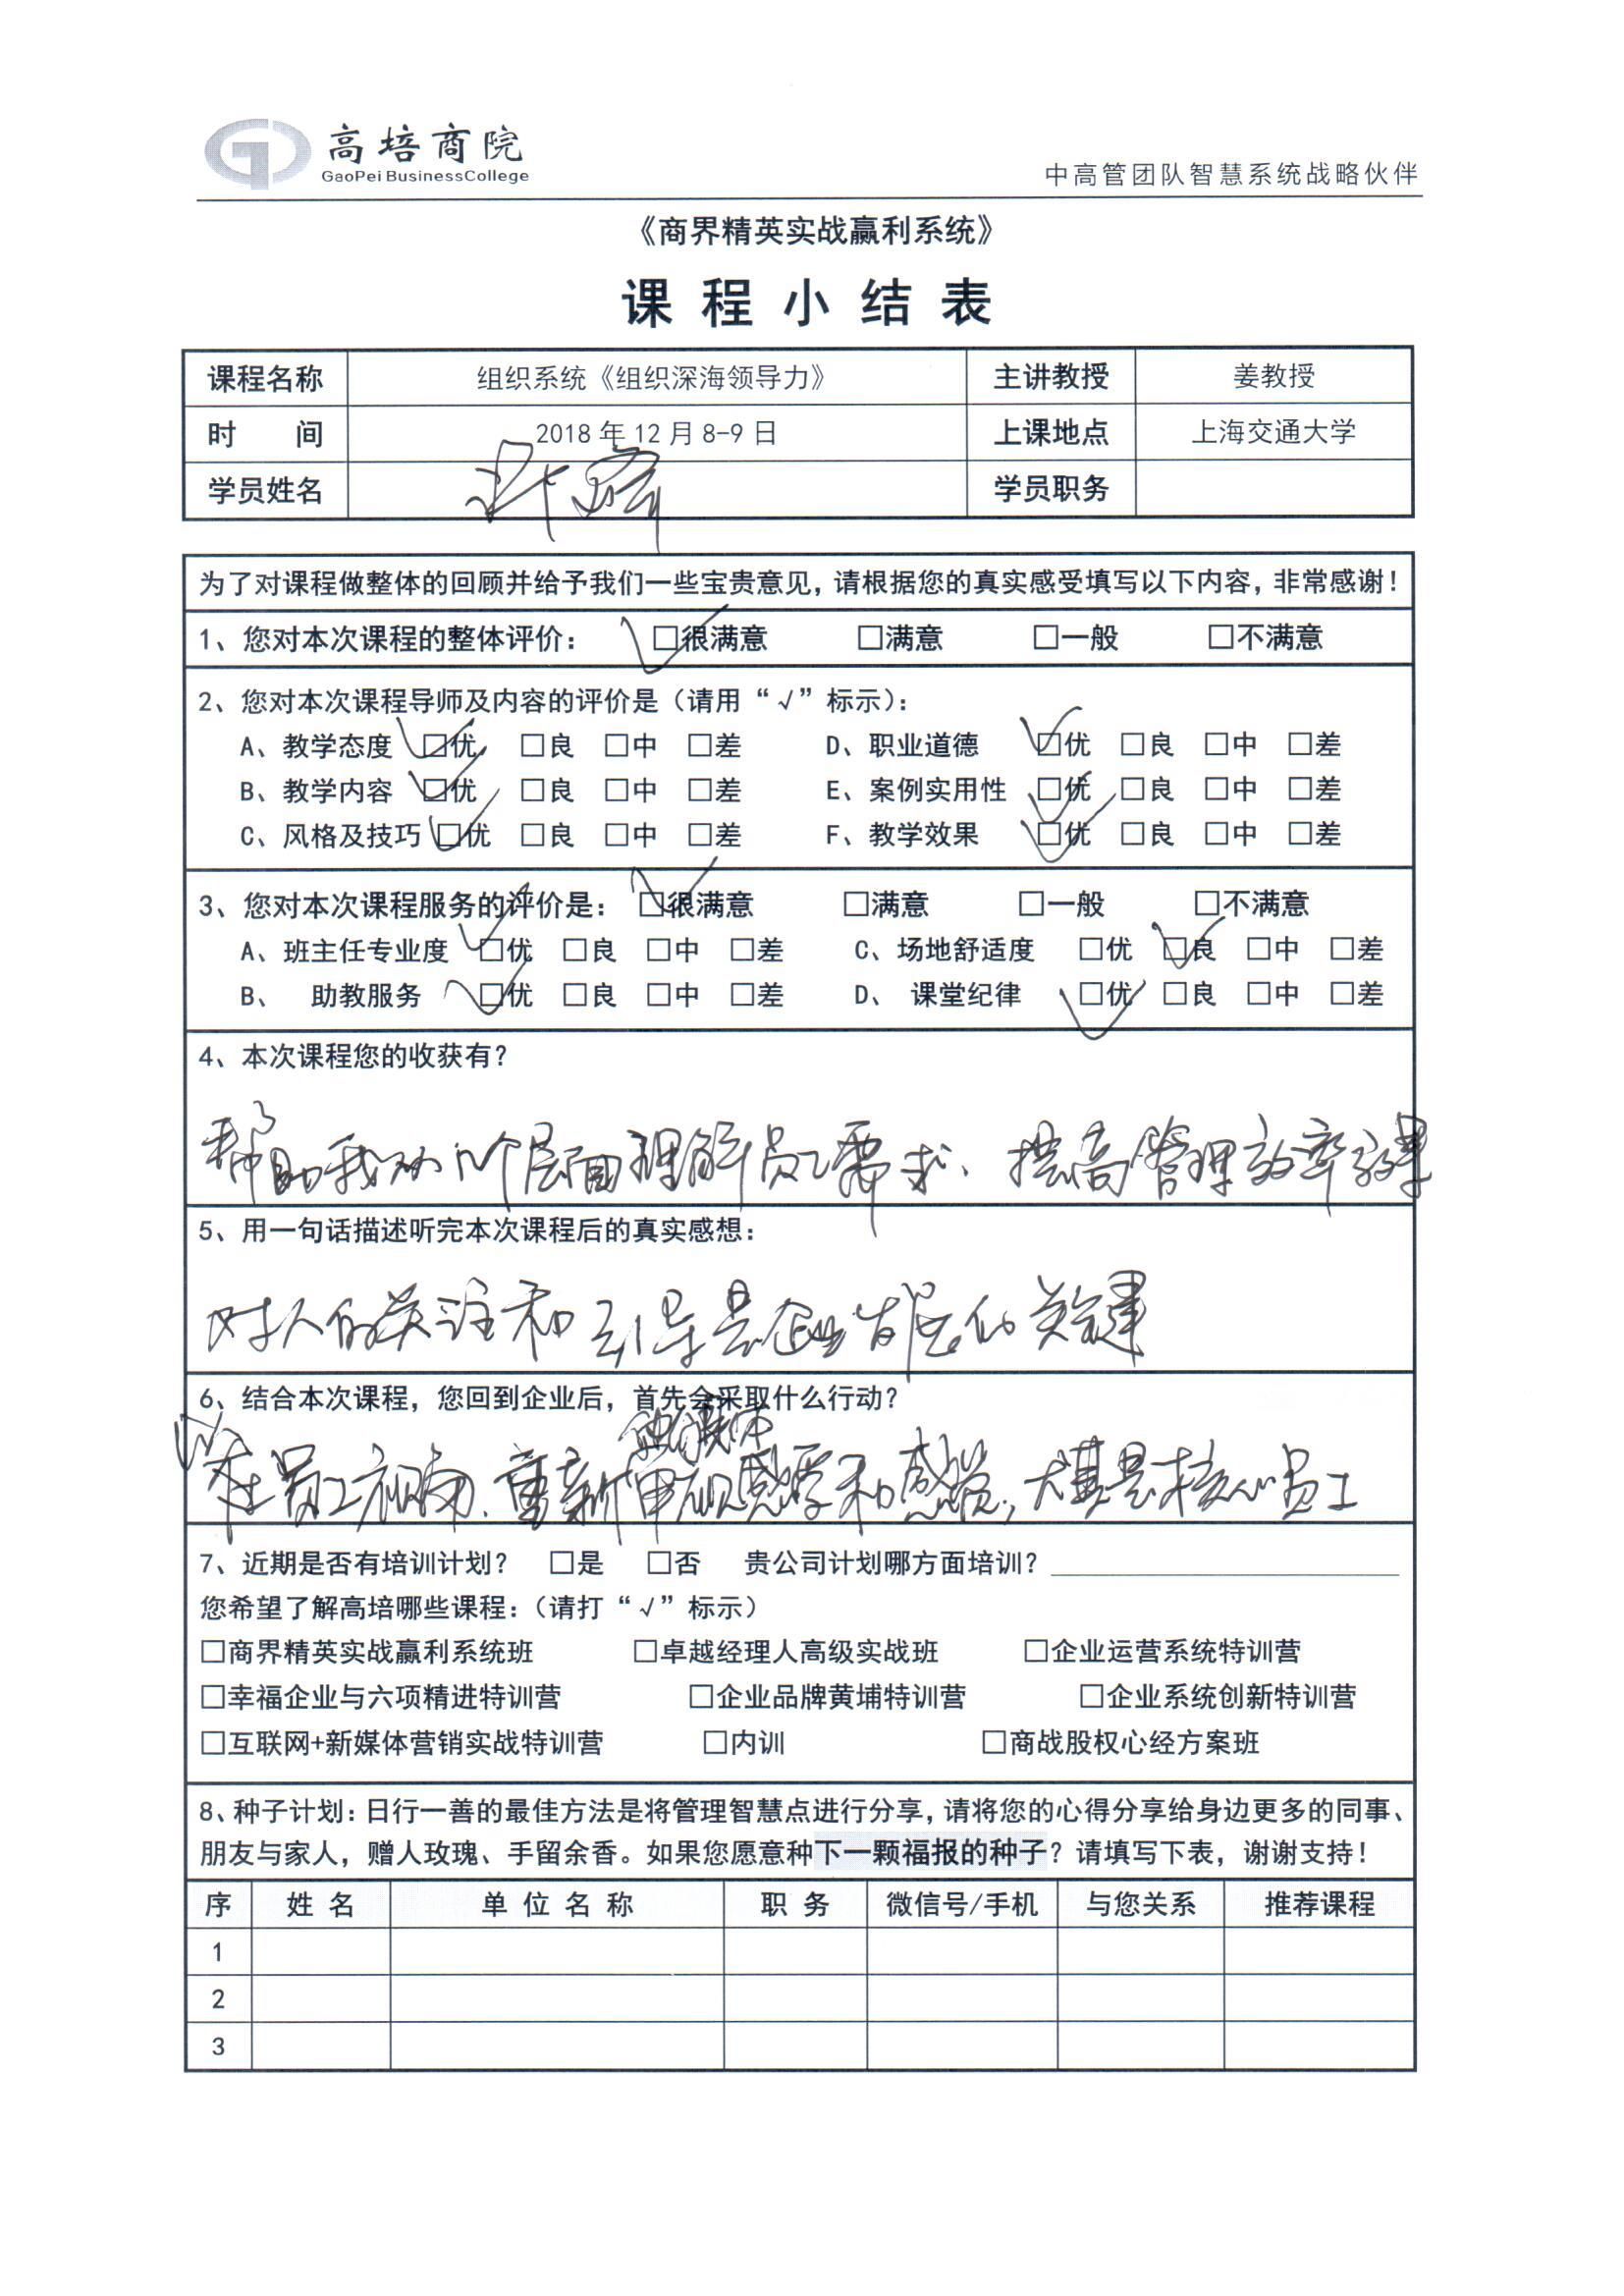 高培商院
GaoPei BusinessCollege
中高管团队智慧系统战略伙伴
《商界精英实战赢利系统》
课 程 小 结 表
课程名称 组织系统《组织深海领导力》 主讲教授 姜教授
时 间 2018 年 12 月 8-9 日 上课地点 上海交通大学
学员姓名 学员职务
为了对课程做整体的回顾并给予我们一些宝贵意见，请根据您的真实感受填写以下内容，非常感谢！
1、您对本次课程的整体评价： ☑很满意 □满意 □一般 □不满意
2、您对本次课程导师及内容的评价是（请用“√”标示）：
A、教学态度 ☑优 □良 □中 □差 D、职业道德 ☑优 □良 □中 □差
B、教学内容 ☑优 □良 □中 □差 E、案例实用性 ☑优 □良 □中 □差
C、风格及技巧 ☑优 □良 □中 □差 F、教学效果 ☑优 □良 □中 □差
3、您对本次课程服务的评价是： ☑很满意 □满意 □一般 □不满意
A、班主任专业度 ☑优 □良 □中 □差 C、场地舒适度 □优 ☑良 □中 □差
B、 助教服务 ☑优 □良 □中 □差 D、 课堂纪律 ☑优 □良 □中 □差
4、本次课程您的收获有？
帮助我从个层面理解员工需求、提高管理效率
5、用一句话描述听完本次课程后的真实感想：
对人的关注和引导是企业发展的关键
6、结合本次课程，您回到企业后，首先会采取什么行动？
员工 重新审视 和感觉，尤其是核心员工
7、近期是否有培训计划？ □是 □否 贵公司计划哪方面培训？
您希望了解高培哪些课程：（请打“√”标示）
□商界精英实战赢利系统班 □卓越经理人高级实战班 □企业运营系统特训营
□幸福企业与六项精进特训营 □企业品牌黄埔特训营 □企业系统创新特训营
□互联网+新媒体营销实战特训营 □内训 □商战股权心经方案班
8、种子计划：日行一善的最佳方法是将管理智慧点进行分享，请将您的心得分享给身边更多的同事、
朋友与家人，赠人玫瑰、手留余香。如果您愿意种下一颗福报的种子？请填写下表，谢谢支持！
序 姓 名 单 位 名 称 职 务 微信号/手机 与您关系 推荐课程
1
2
3